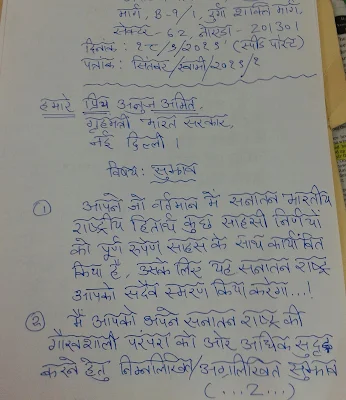 मार्ग, B-9/1, दुर्गा शक्ति मार्ग,
सेक्टर-62, नोएडा-201301
दिनांक: १८/९/२०१९ (स्पीड पोस्ट)
पत्रांक: सितंबर/स्वामी/२०१९/१
हमारे प्रिय अनुज अमित,
गृहमंत्री भारत सरकार,
नई दिल्ली।
विषय: सुझाव
① आपने जो वर्तमान में सनातन भारतीय
राष्ट्रीय हितार्थ कुछ साहसी निर्णयों
को पूर्ण रूपेण साहस के साथ कार्यान्वित
किया है, उसके लिए यह सनातन राष्ट्र
आपको सदैव स्मरण किया करेगा...!
② मैं आपको अपने सनातन राष्ट्र की
गौरवशाली परंपरा को और अधिक सुदृढ़
करने हेतु निम्नलिखित/अग्रलिखित सुझाव
(...2...)